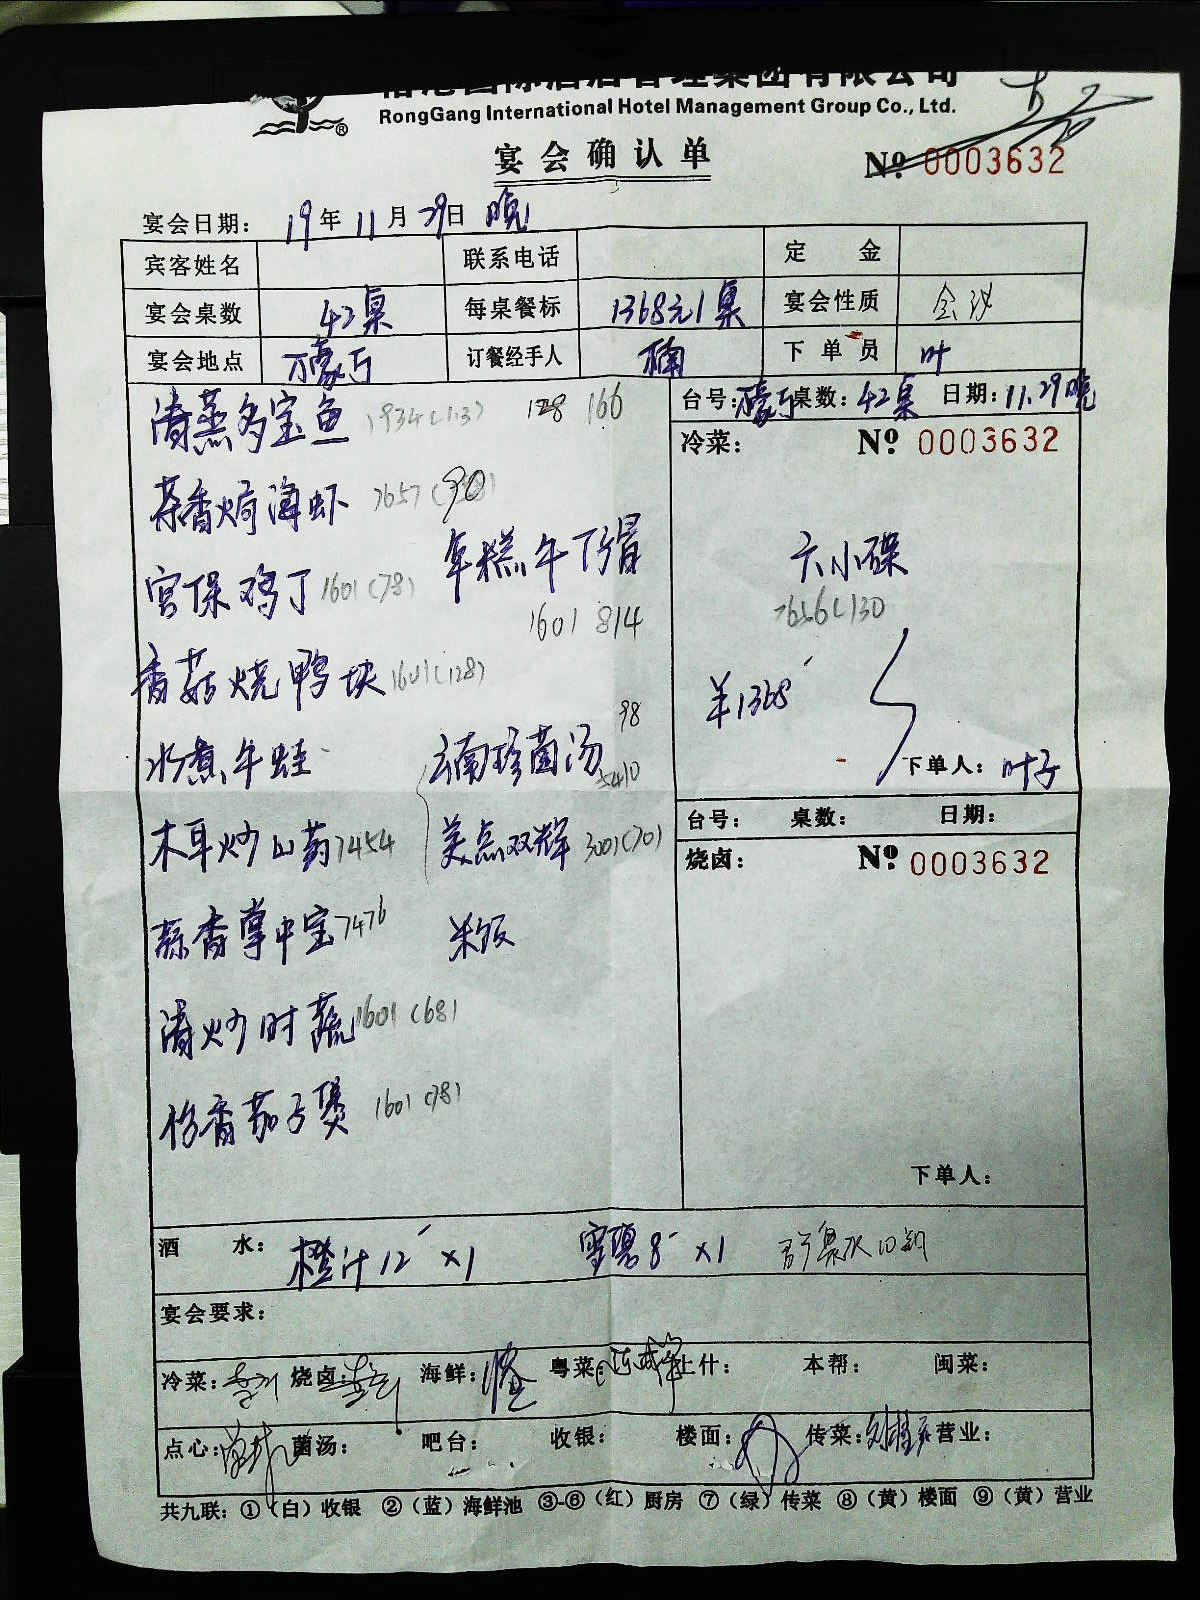 国际酒店管理集团有限公司
RongGang International Hotel Management Group Co., Ltd.
宴会确认单
№ 0003632
宴会日期: 19年 11月 29日 晚
宾客姓名 联系电话 定 金
宴会桌数 42桌 每桌餐标 1368元/桌 宴会性质 会议
宴会地点 万豪厅 订餐经手人 下单员 叶
台号: 万豪厅 桌数: 42桌 日期: 11.29晚
冷菜: № 0003632
清蒸多宝鱼 1934(113) 128 166
茶香焗海虾 7657 (90)
年糕牛仔骨
1601 814
宫保鸡丁 1601(78)
香菇烧鸭块 1601(128)
水煮牛蛙
云南珍菌汤 98
5410
木耳炒山药 7454
美点双辉 3001(70)
蒜香掌中宝 7476
米饭
清炒时蔬 1601 (68)
茄子煲 1601 (78)
六小碟
7656(130
1368
下单人: 叶子
台号: 桌数: 日期:
烧卤: № 0003632
下单人:
酒 水: 橙汁12 ×1 雪碧8 ×1
宴会要求:
冷菜: 烧卤: 海鲜: 粤菜: 上什: 本帮: 闽菜:
点心: 菌汤: 吧台: 收银: 楼面: 传菜: 营业:
共九联: ①(白)收银 ②(蓝)海鲜池 ③-⑥(红)厨房 ⑦(绿)传菜 ⑧(黄)楼面 ⑨(黄)营业